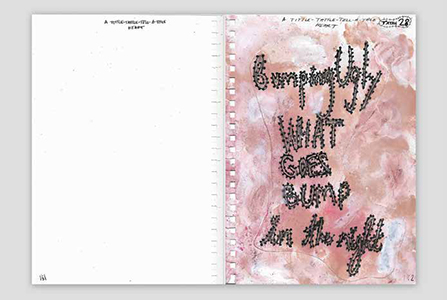 A TITTLE-TATTLE-TELL-A-TALE
HEART
A TITTLE-TATTLE-TELL-A-TALE
HEART
28
BumpingUgly
WHAT
GOES
BUMP
In the night